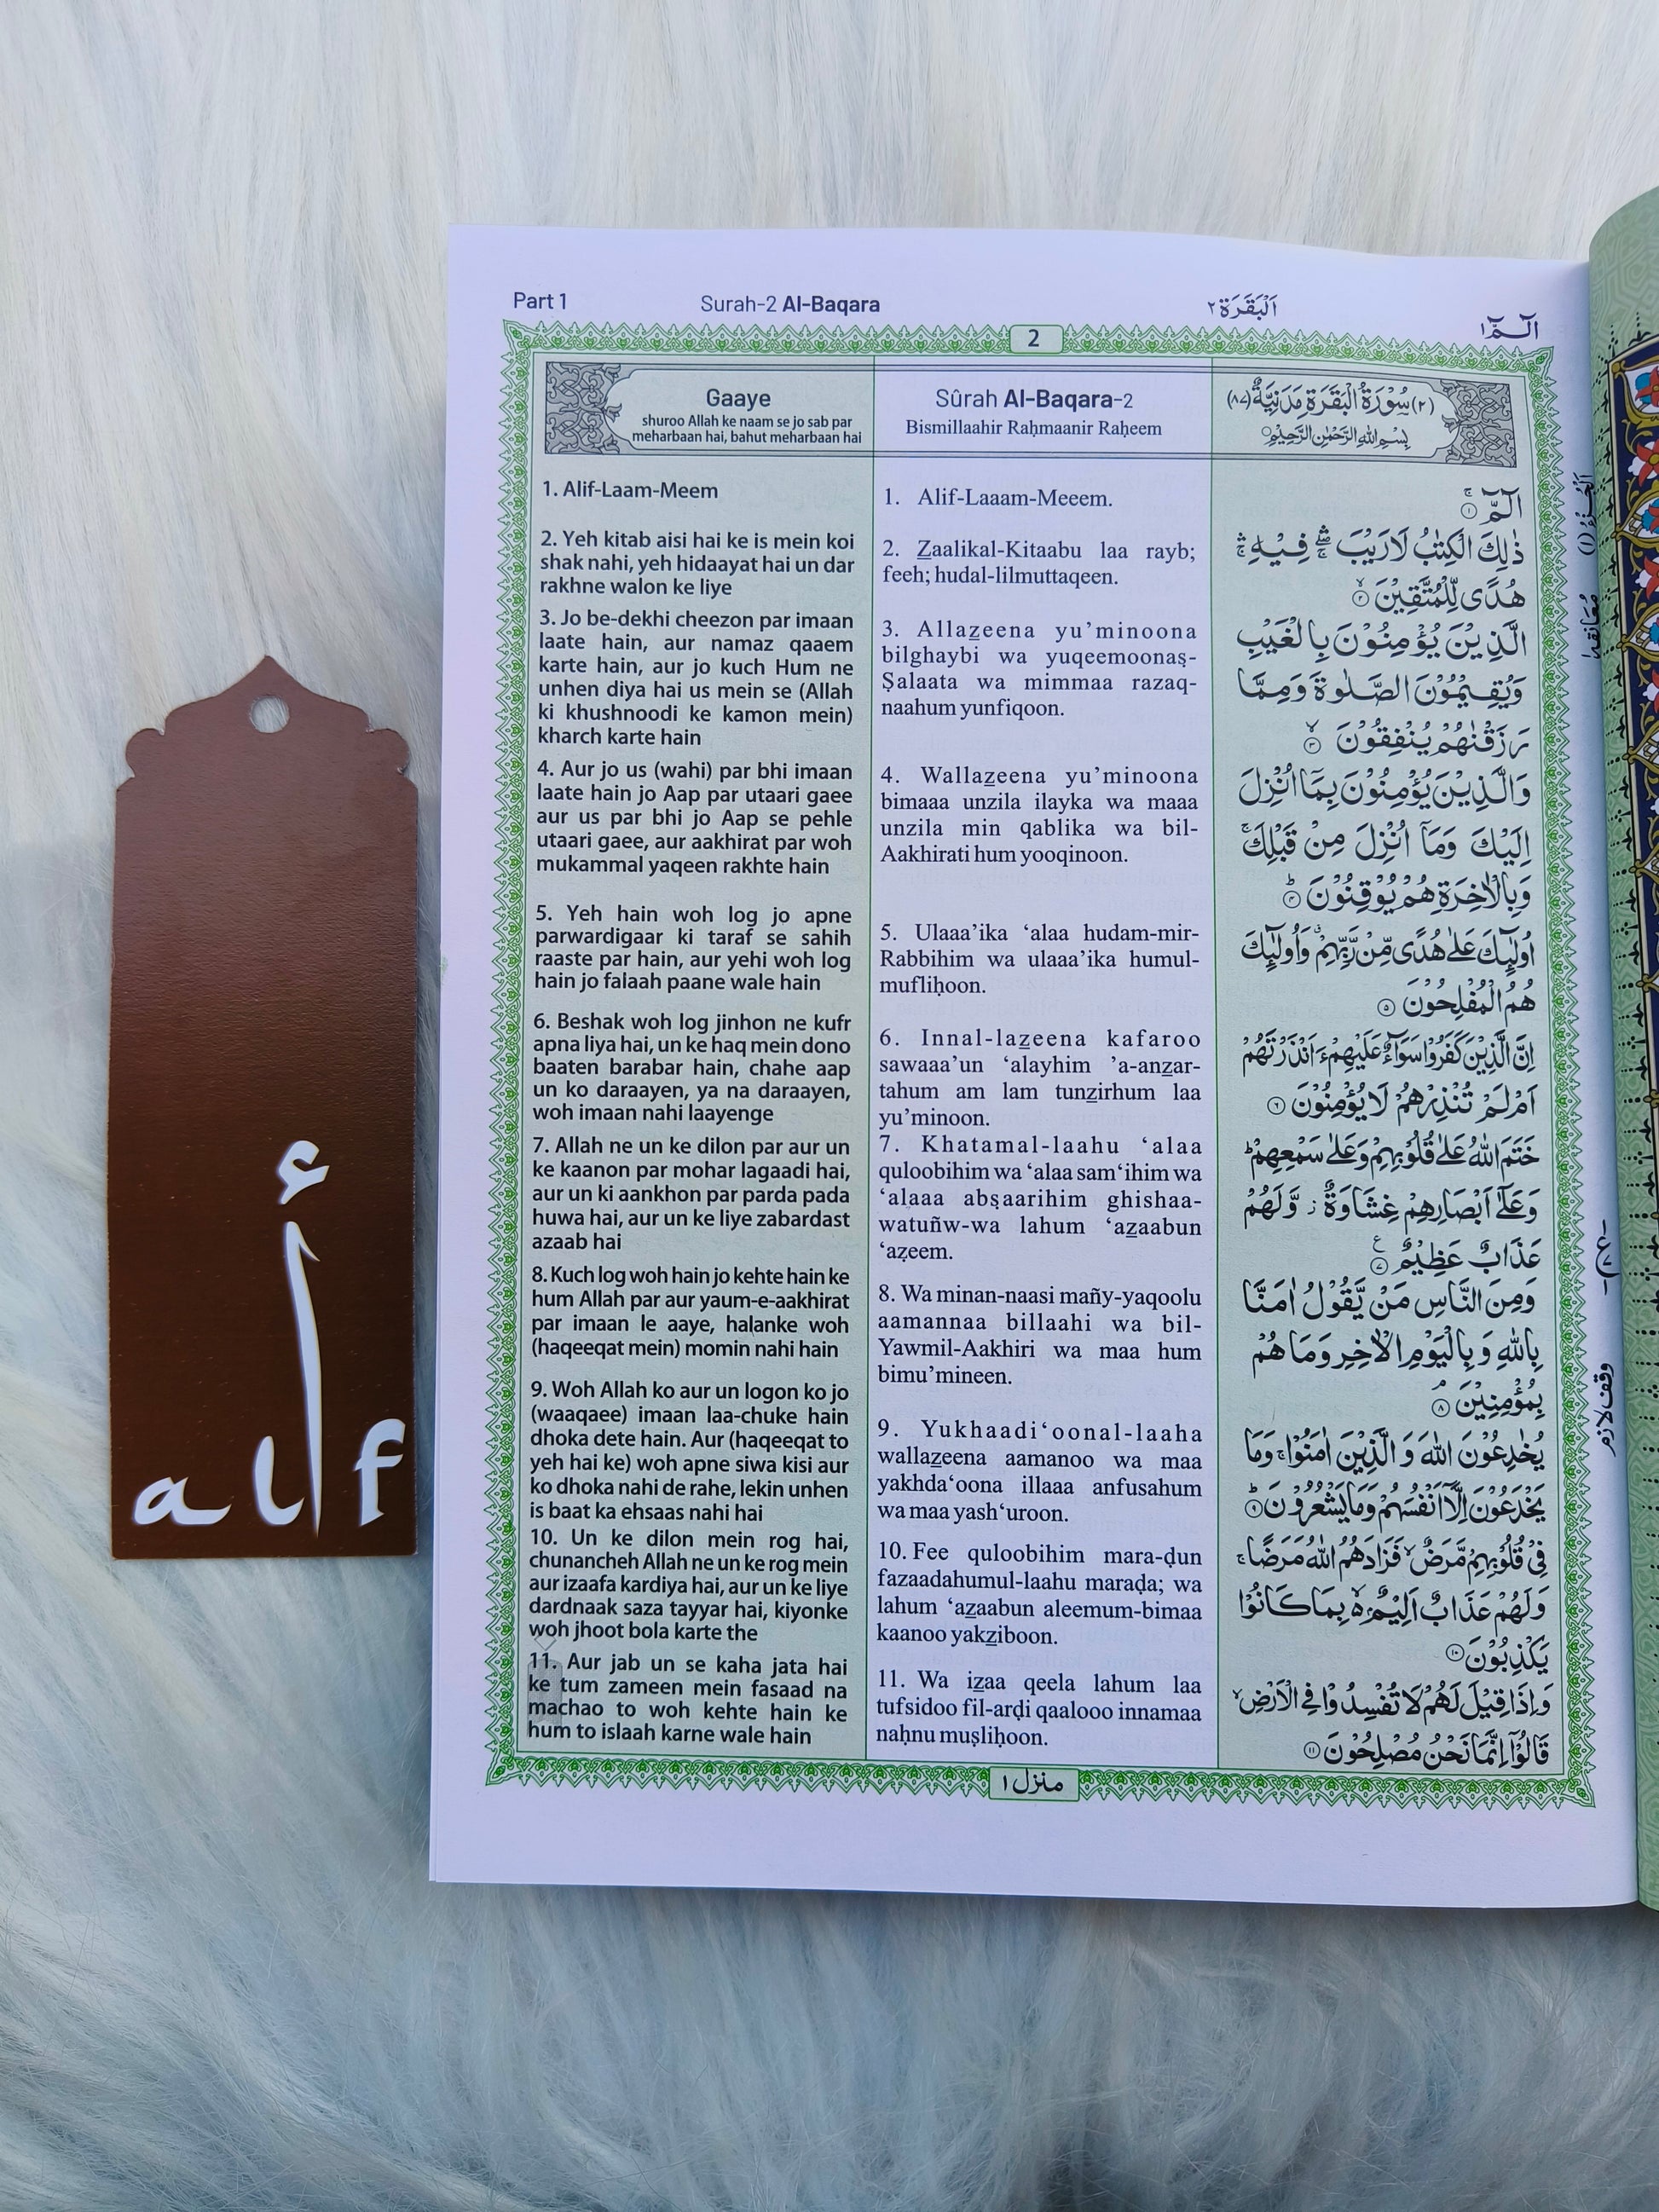 Part 1
Surah-2 Al-Baqara
اَلْبَقَرَة ٢
الٓمّٓ ١
2
Gaaye
shuroo Allah ke naam se jo sab par
meharbaan hai, bahut meharbaan hai
1. Alif-Laam-Meem
2. Yeh kitab aisi hai ke is mein koi
shak nahi, yeh hidaayat hai un dar
rakhne walon ke liye
3. Jo be-dekhi cheezon par imaan
laate hain, aur namaz qaaem
karte hain, aur jo kuch Hum ne
unhen diya hai us mein se (Allah
ki khushnoodi ke kamon mein)
kharch karte hain
4. Aur jo us (wahi) par bhi imaan
laate hain jo Aap par utaari gaee
aur us par bhi jo Aap se pehle
utaari gaee, aur aakhirat par woh
mukammal yaqeen rakhte hain
5. Yeh hain woh log jo apne
parwardigaar ki taraf se sahih
raaste par hain, aur yehi woh log
hain jo falaah paane wale hain
6. Beshak woh log jinhon ne kufr
apna liya hai, un ke haq mein dono
baaten barabar hain, chahe aap
un ko daraayen, ya na daraayen,
woh imaan nahi laayenge
7. Allah ne un ke dilon par aur un
ke kaanon par mohar lagaadi hai,
aur un ki aankhon par parda pada
huwa hai, aur un ke liye zabardast
azaab hai
8. Kuch log woh hain jo kehte hain ke
hum Allah par aur yaum-e-aakhirat
par imaan le aaye, halanke woh
(haqeeqat mein) momin nahi hain
9. Woh Allah ko aur un logon ko jo
(waaqaee) imaan laa-chuke hain
dhoka dete hain. Aur (haqeeqat to
yeh hai ke) woh apne siwa kisi aur
ko dhoka nahi de rahe, lekin unhen
is baat ka ehsaas nahi hai
10. Un ke dilon mein rog hai,
chunancheh Allah ne un ke rog mein
aur izaafa kardiya hai, aur un ke liye
dardnaak saza tayyar hai, kiyonke
woh jhoot bola karte the
11. Aur jab un se kaha jata hai
ke tum zameen mein fasaad na
machao to woh kehte hain ke
hum to islaah karne wale hain
Sûrah Al-Baqara-2
Bismillaahir Raḥmaanir Raḥeem
1. Alif-Laaam-Meeem.
2. Z̲aalikal-Kitaabu laa rayb;
feeh; hudal-lilmuttaqeen.
3. Allaz̲eena yu’minoona
bilghaybi wa yuqeemoonaṣ-
Ṣalaata wa mimmaa razaq-
naahum yunfiqoon.
4. Wallaz̲eena yu’minoona
bimaaa unzila ilayka wa maaa
unzila min qablika wa bil-
Aakhirati hum yooqinoon.
5. Ulaaa’ika ‘alaa hudam-mir-
Rabbihim wa ulaaa’ika humul-
mufliḥoon.
6. Innal-laz̲eena kafaroo
sawaaa’un ‘alayhim ’a-anz̲ar-
tahum am lam tunz̲irhum laa
yu’minoon.
7. Khatamal-laahu ‘alaa
quloobihim wa ‘alaa sam‘ihim wa
‘alaaa abṣaarihim ghishaa-
watuñw-wa lahum ‘az̲aabun
‘aẓeem.
8. Wa minan-naasi mañy-yaqoolu
aamannaa billaahi wa bil-
Yawmil-Aakhiri wa maa hum
bimu’mineen.
9. Yukhaadi‘oonal-laaha
wallaz̲eena aamanoo wa maa
yakhda‘oona illaaa anfusahum
wa maa yash‘uroon.
10. Fee quloobihim mara-ḍun
fazaadahumul-laahu maraḍa; wa
lahum ‘az̲aabun aleemum-bimaa
kaanoo yakz̲iboon.
11. Wa iz̲aa qeela lahum laa
tufsidoo fil-arḍi qaalooo innamaa
naḥnu muṣliḥoon.
(٢) سُوْرَةُ الْبَقَرَةِ مَدَنِيَّةٌ (٨٧)
بِسْمِ اللهِ الرَّحْمٰنِ الرَّحِيْمِ
الٓمّٓ ۚ ١
ذٰلِكَ الْكِتٰبُ لَا رَيْبَ ۛ فِيْهِ ۛ
هُدًى لِّلْمُتَّقِيْنَ ۙ ٢
الَّذِيْنَ يُؤْمِنُوْنَ بِالْغَيْبِ
وَيُقِيْمُوْنَ الصَّلٰوةَ وَمِمَّا
رَزَقْنٰهُمْ يُنْفِقُوْنَ ۙ ٣
وَالَّذِيْنَ يُؤْمِنُوْنَ بِمَآ اُنْزِلَ
اِلَيْكَ وَمَآ اُنْزِلَ مِنْ قَبْلِكَ ۚ
وَبِالْاٰخِرَةِ هُمْ يُوْقِنُوْنَ ؕ ٤
اُولٰٓئِكَ عَلٰى هُدًى مِّنْ رَّبِّهِمْ ۗ وَاُولٰٓئِكَ
هُمُ الْمُفْلِحُوْنَ ٥
اِنَّ الَّذِيْنَ كَفَرُوْا سَوَآءٌ عَلَيْهِمْ ءَاَنْذَرْتَهُمْ
اَمْ لَمْ تُنْذِرْهُمْ لَا يُؤْمِنُوْنَ ٦
خَتَمَ اللهُ عَلٰى قُلُوْبِهِمْ وَعَلٰى سَمْعِهِمْ ؕ
وَعَلٰٓى اَبْصَارِهِمْ غِشَاوَةٌ ؗ وَّلَهُمْ
عَذَابٌ عَظِيْمٌ ٧
وَمِنَ النَّاسِ مَنْ يَّقُوْلُ اٰمَنَّا
بِاللهِ وَبِالْيَوْمِ الْاٰخِرِ وَمَا هُمْ
بِمُؤْمِنِيْنَ ۘ ٨
يُخٰدِعُوْنَ اللهَ وَ الَّذِيْنَ اٰمَنُوْا ۚ وَمَا
يَخْدَعُوْنَ اِلَّآ اَنْفُسَهُمْ وَمَا يَشْعُرُوْنَ ؕ ٩
فِيْ قُلُوْبِهِمْ مَّرَضٌ ۙ فَزَادَهُمُ اللهُ مَرَضًا ۚ
وَلَهُمْ عَذَابٌ اَلِيْمٌ ۙ بِمَا كَانُوْا
يَكْذِبُوْنَ ١٠
وَاِذَا قِيْلَ لَهُمْ لَا تُفْسِدُوْا فِي الْاَرْضِ ۙ
قَالُوْٓا اِنَّمَا نَحْنُ مُصْلِحُوْنَ ١١
اَلْجُزْءُ (١)
معانقة ١
وقف لازم
منزل ١
أ
alif